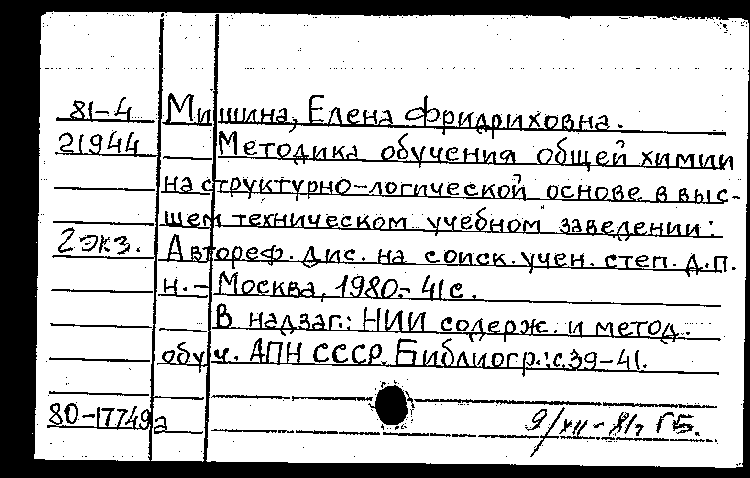 81-4 Мишина, Елена Фридриховна.
21944 Методика обучения общей химии
на структурно-логической основе в выс-
шем техническом учебном заведении:
2 экз. Автореф. дис. на соиск. учен. степ. д.п.
н. - Москва, 1980. - 41 с.
В надзаг.: НИИ содерж. и метод.
обуч. АПН СССР. Библиогр.: с. 39-41.
80-17749а 9/XII - 81г ГБ.